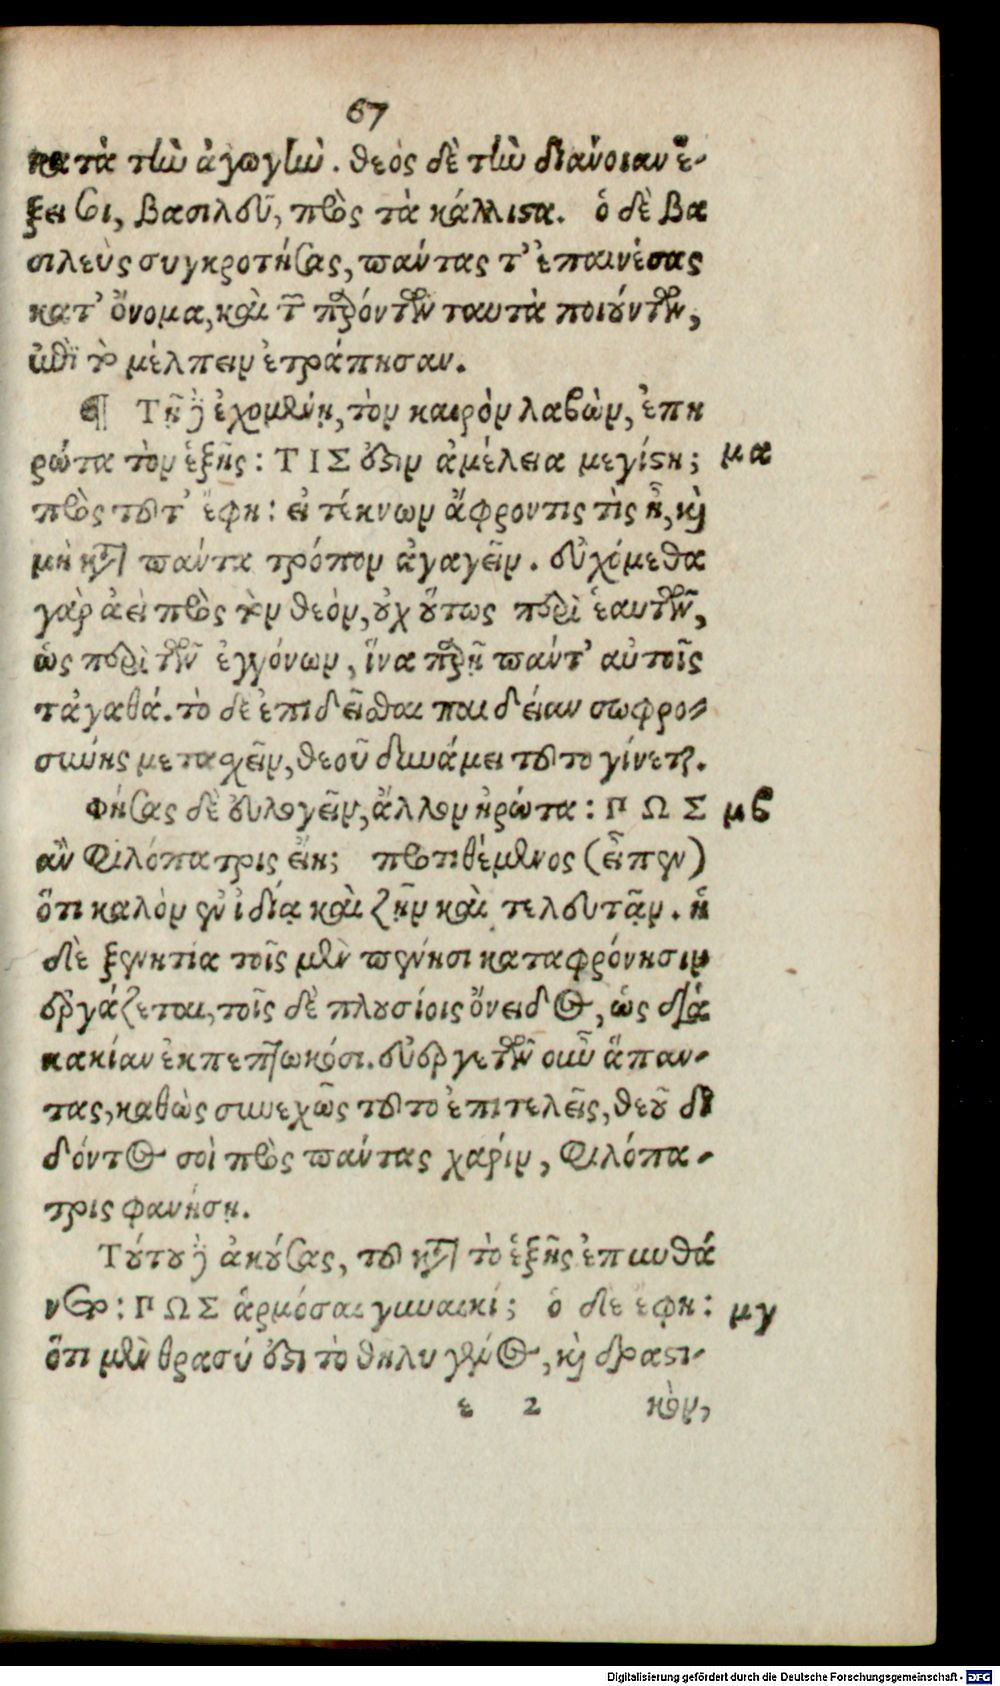 67
κατὰ τὴν ἀγωγὴν. θεὸς δὲ τὴν διάνοιαν ἕ-
ξει σοι, βασιλεῦ, πρὸς τὰ κάλλιστα. ὁ δὲ βα
σιλεὺς συγκροτήσας, πάντας τ' ἐπαινέσας
κατ' ὄνομα, καὶ τῶν παρόντων ταυτὰ ποιούντων,
ἐπὶ τὸ μέλπειν ἐτράπησαν.
¶ Τῇ δὲ ἐχομένῃ, τὸν καιρὸν λαβὼν, ἐπη
ρώτα τὸν ἑξῆς: ΤΙΣ ἐστιν ἀμέλεια μεγίστη; μα
πρὸς τοῦτ' ἔφη: εἰ τέκνων ἄφροντις τὶς ᾖ, καὶ
μὴ κατὰ πάντα τρόπον ἀγαγεῖν. εὐχόμεθα
γὰρ ἀεὶ πρὸς τὸν θεὸν, οὐχ οὕτως περὶ ἑαυτῶν,
ὡς περὶ τῶν ἐγγόνων, ἵνα παρῇ πάντ' αὐτοῖς
τἀγαθά. τὸ δὲ ἐπιδεῖσθαι παιδείαν σωφρο-
σύνης μετασχεῖν, θεοῦ δυνάμει τοῦτο γίνεται.
Φήσας δὲ εὐλογεῖν, ἄλλον ἠρώτα: ΠΩΣ μβ
ἂν φιλόπατρις εἴη; προτιθέμενος (εἶπεν)
ὅτι καλὸν ἐν ἰδίᾳ καὶ ζῇν καὶ τελευτᾷν. ἡ
δὲ ξενητία τοῖς μὲν πένησι καταφρόνησιν
ἐργάζεται, τοῖς δὲ πλουσίοις ὄνειδος, ὡς διὰ
κακίαν ἐκπεπτωκόσι. εὐεργετῶν οὖν ἅπαν-
τας, καθὼς συνεχῶς τοῦτο ἐπιτελεῖς, θεοῦ δι
δόντος σοὶ πρὸς πάντας χάριν, φιλόπα-
τρις φανήσῃ.
Τούτου δὲ ἀκούσας, τοῦ κατὰ τὸ ἑξῆς ἐπυνθά
νετο: ΠΩΣ ἁρμόσαι γυναικί; ὁ δὲ ἔφη: μγ
ὅτι μὲν θρασύ ἐστι τὸ θῆλυ γένος, καὶ δραστι-
ε 2 κὸν,
Digitalisierung gefördert durch die Deutsche Forschungsgemeinschaft - DFG